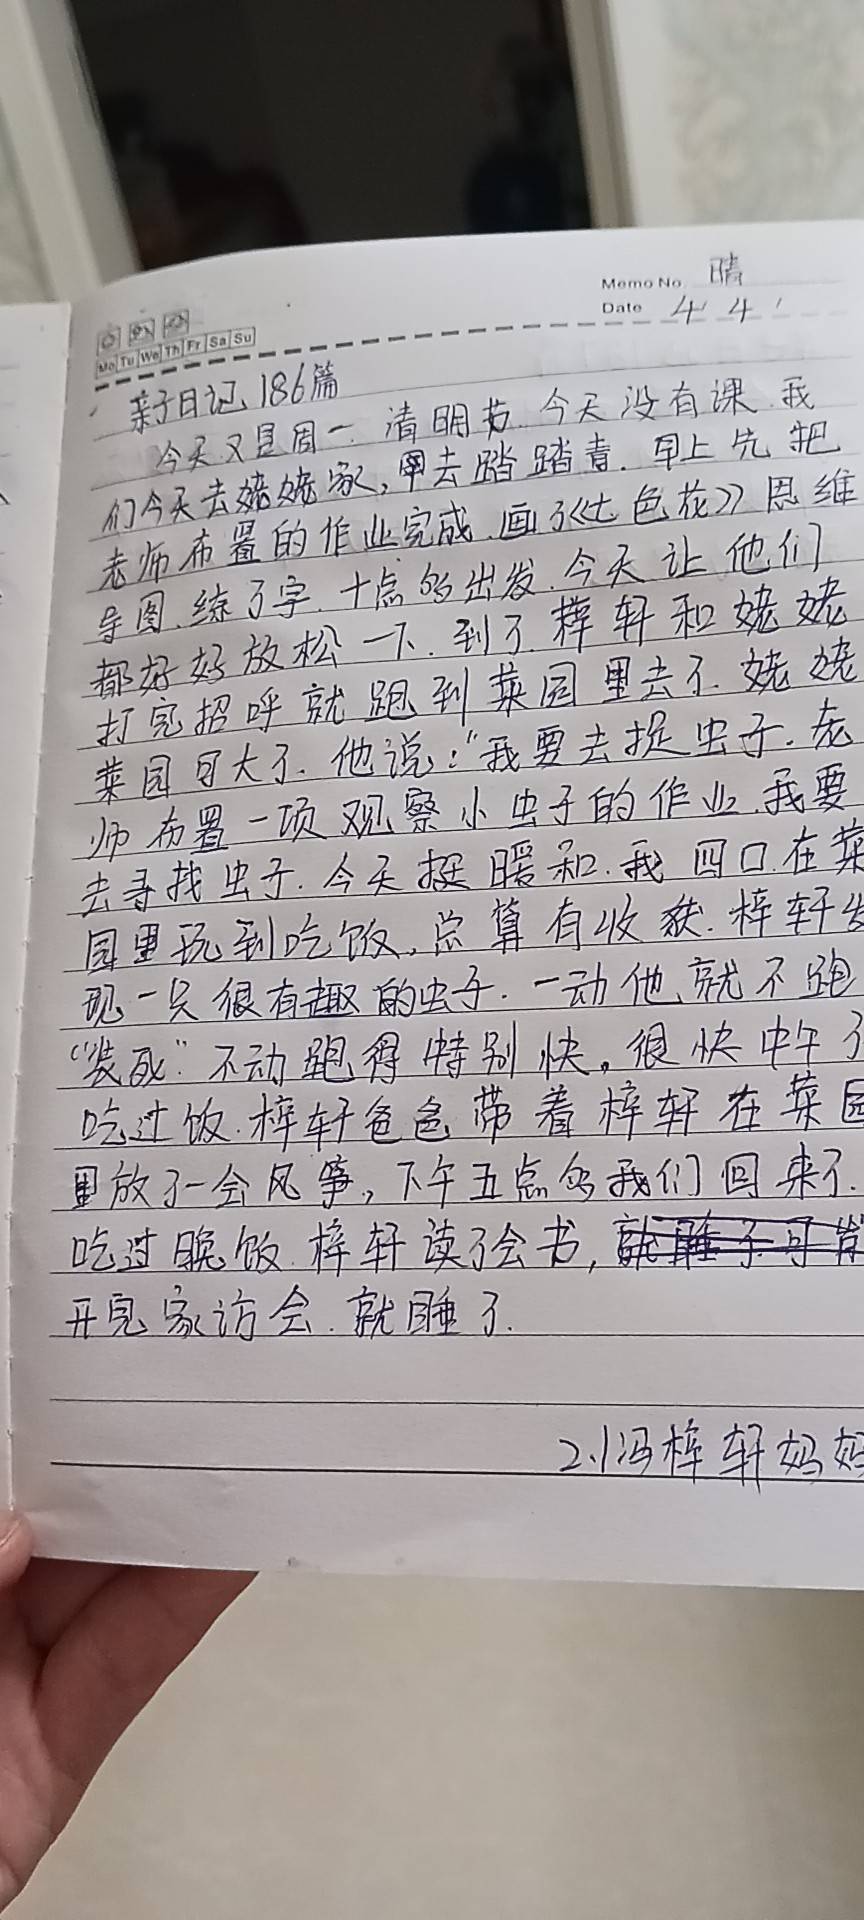 Memo No. 晴
Date 4 4
Mo Tu We Th Fr Sa Su
亲子日记 186篇
今天又是周一. 清明节. 今天没有课. 我
们今天去姥姥家, 去踏踏青. 早上先把
老师布置的作业完成. 画了《七色花》思维
导图. 练了字. 十点多出发. 今天让他们
都好好放松一下. 到了. 梓轩和姥姥
打完招呼就跑到菜园里去了. 姥姥
菜园可大了. 他说:“我要去捉虫子. 老
师布置一项观察小虫子的作业. 我要
去寻找虫子. 今天挺暖和. 我四口在菜
园里玩到吃饭, 总算有收获. 梓轩发
现一只很有趣的虫子. 一动他就不跑
“装死” 不动跑得特别快。很快中午了
吃过饭. 梓轩爸爸带着梓轩在菜园
里放了一会风筝, 下午五点多我们回来了.
吃过晚饭. 梓轩读了会书,
开完家访会. 就睡了.
2.1冯梓轩妈妈